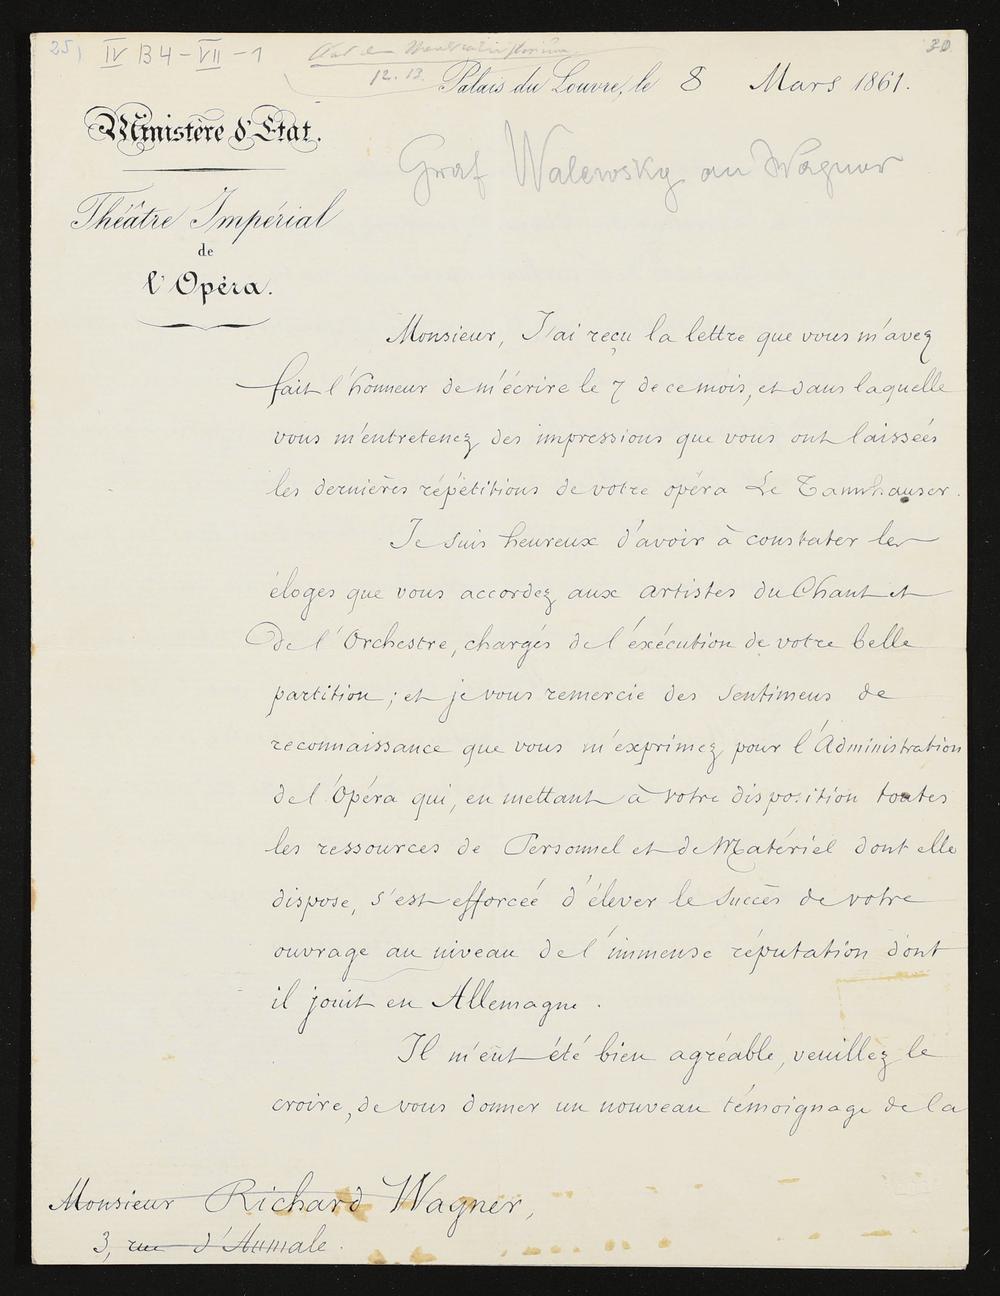 25) IV B 4 - VII - 1
12. 13.
30
Palais du Louvre, le 8 Mars 1861.
Ministère d'Etat.
Graf Walewsky an Wagner
Théâtre Impérial
de
l'Opéra.
Monsieur, J'ai reçu la lettre que vous m'avez
fait l'honneur de m'écrire le 7 de ce mois, et dans laquelle
vous m'entretenez des impressions que vous ont laissées
les dernières répétitions de votre opéra Le Tannhauser.
Je suis heureux d'avoir à constater les
éloges que vous accordez aux artistes du Chant et
de l'Orchestre, chargés de l'éxécution de votre belle
partition ; et je vous remercie des sentimens de
reconnaissance que vous m'exprimez pour l'Administration
de l'Opéra qui, en mettant à votre disposition toutes
les ressources de Personnel et de Matériel dont elle
dispose, s'est efforcée d'élever le succès de votre
ouvrage au niveau de l'immense réputation dont
il jouit en Allemagne.
Il m'eut été bien agréable, veuillez le
croire, de vous donner un nouveau témoignage de la
Monsieur Richard Wagner,
3, rue d'Aumale.